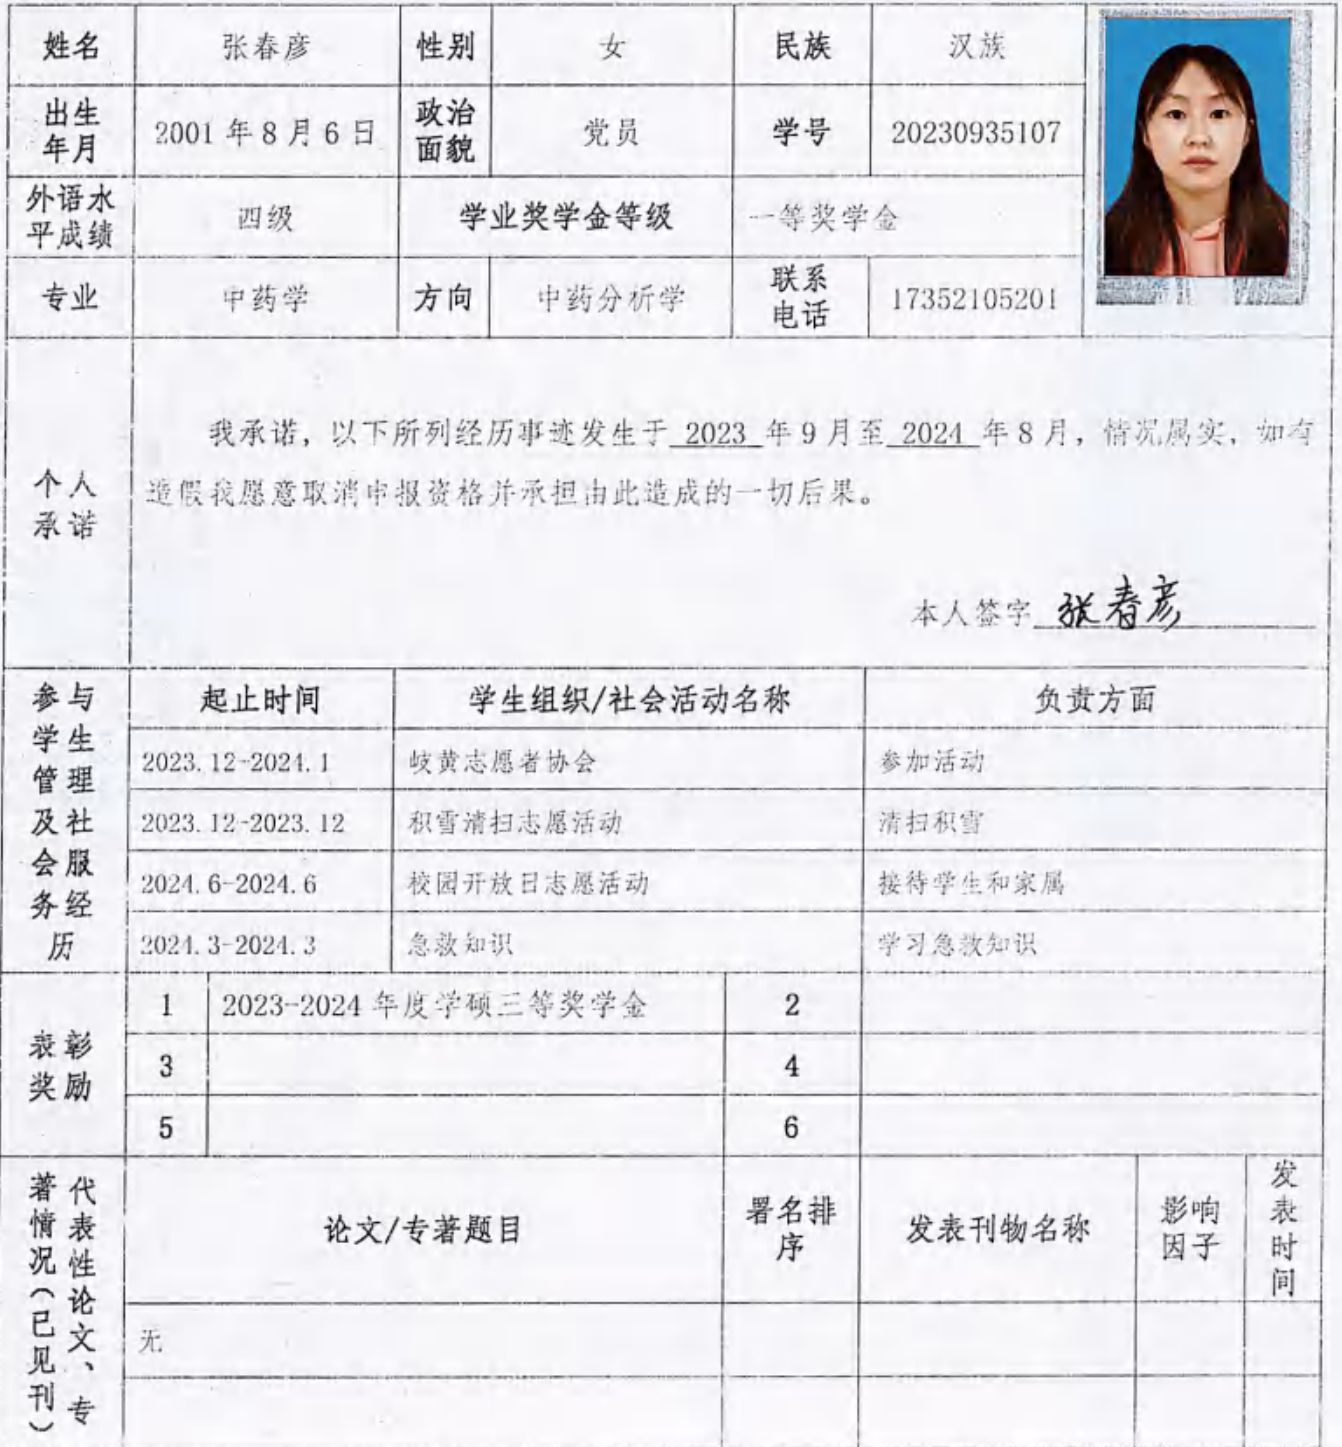 姓名 张春彦 性别 女 民族 汉族
出生年月 2001 年 8 月 6 日 政治面貌 党员 学号 20230935107
外语水平成绩 四级 学业奖学金等级 一等奖学金
专业 中药学 方向 中药分析学 联系电话 17352105201
个人承诺
我承诺，以下所列经历事迹发生于 2023 年 9 月至 2024 年 8 月，情况属实，如有
造假我愿意取消申报资格并承担由此造成的一切后果。
本人签字 张春彦
参与学生管理及社会服务经历
起止时间 学生组织/社会活动名称 负责方面
2023.12-2024.1 岐黄志愿者协会 参加活动
2023.12-2023.12 积雪清扫志愿活动 清扫积雪
2024.6-2024.6 校园开放日志愿活动 接待学生和家属
2024.3-2024.3 急救知识 学习急救知识
表彰奖励
1 2023-2024 年度学硕三等奖学金 2
3 4
5 6
代表性论文、专著情况（已见刊）
论文/专著题目 署名排序 发表刊物名称 影响因子 发表时间
无